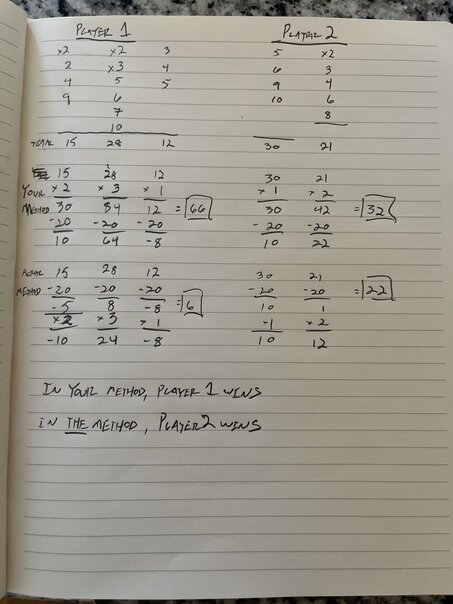 PLAYER 1 PLAYER 2
×2 ×2 3 5 ×2
2 ×3 4 6 3
4 5 5 9 4
9 6 10 6
7 8
10
TOTAL 15 28 12 30 21
15 28 12 30 21
YOUR × 2 × 3 × 1 × 1 × 2
METHOD 30 84 12 = 66 30 42 = 32
-20 -20 -20 -20 -20
10 64 -8 10 22
ACTUAL 15 28 12 30 21
METHOD -20 -20 -20 -20 -20 = 22
-5 8 -8 = 6 10 1
×2 × 3 × 1 ×1 × 2
-10 24 -8 10 12
IN YOUR METHOD, PLAYER 1 WINS
IN THE METHOD, PLAYER 2 WINS